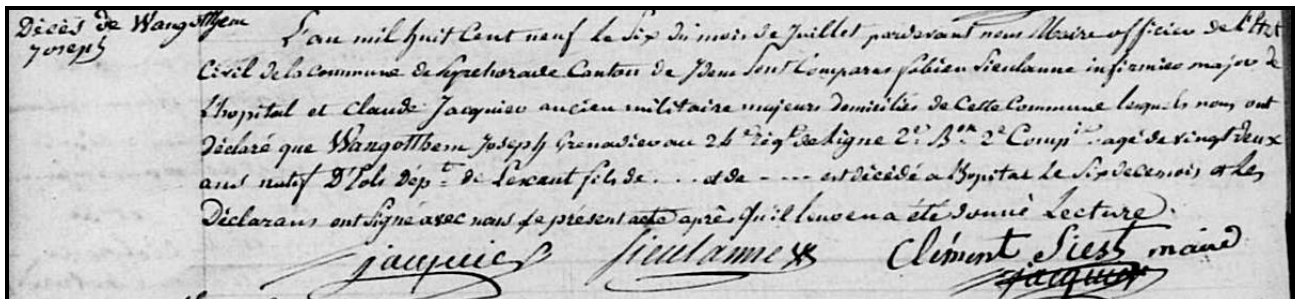 Décès de Wangotthem
Joseph
L'an mil huit Cent neuf le Six du mois de Juillet pardevant nous Maire officier de l'Etat
Civil de la Commune de Peyrehorade Canton de Idem sont Comparus fabien Sieulanne infirmier major de
l'hopital et Claude Jacquier ancien militaire majeurs domiciliés de Cette Commune lesquels nous ont
Déclaré que Wangotthem Joseph Grenadier au 24e régt de Ligne 2e Bon 2e Compie agé de vingt deux
ans natif D' Dépt de Lescaut fils de .... et de .... est décédé a l'hopital le Six de ce mois et les
Déclarans ont Signé avec nous le présent acte après qu'il leur en a été donné Lecture.
jacquier Sieulanne Clément Siest maire
jacquier